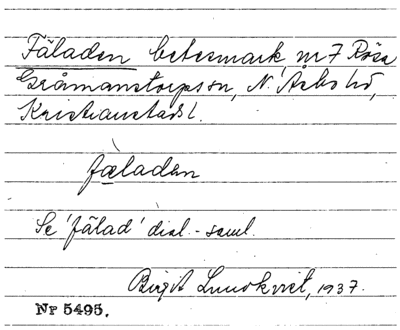 Fäladen betesmark, nr 7 Rösa
Gråmanstorps sn, N. Åsbo hd,
Kristianstads l.
fæladan
Se 'fälad' dial.-saml.
Birgit Lundkvist, 1937.
Nr 5495.